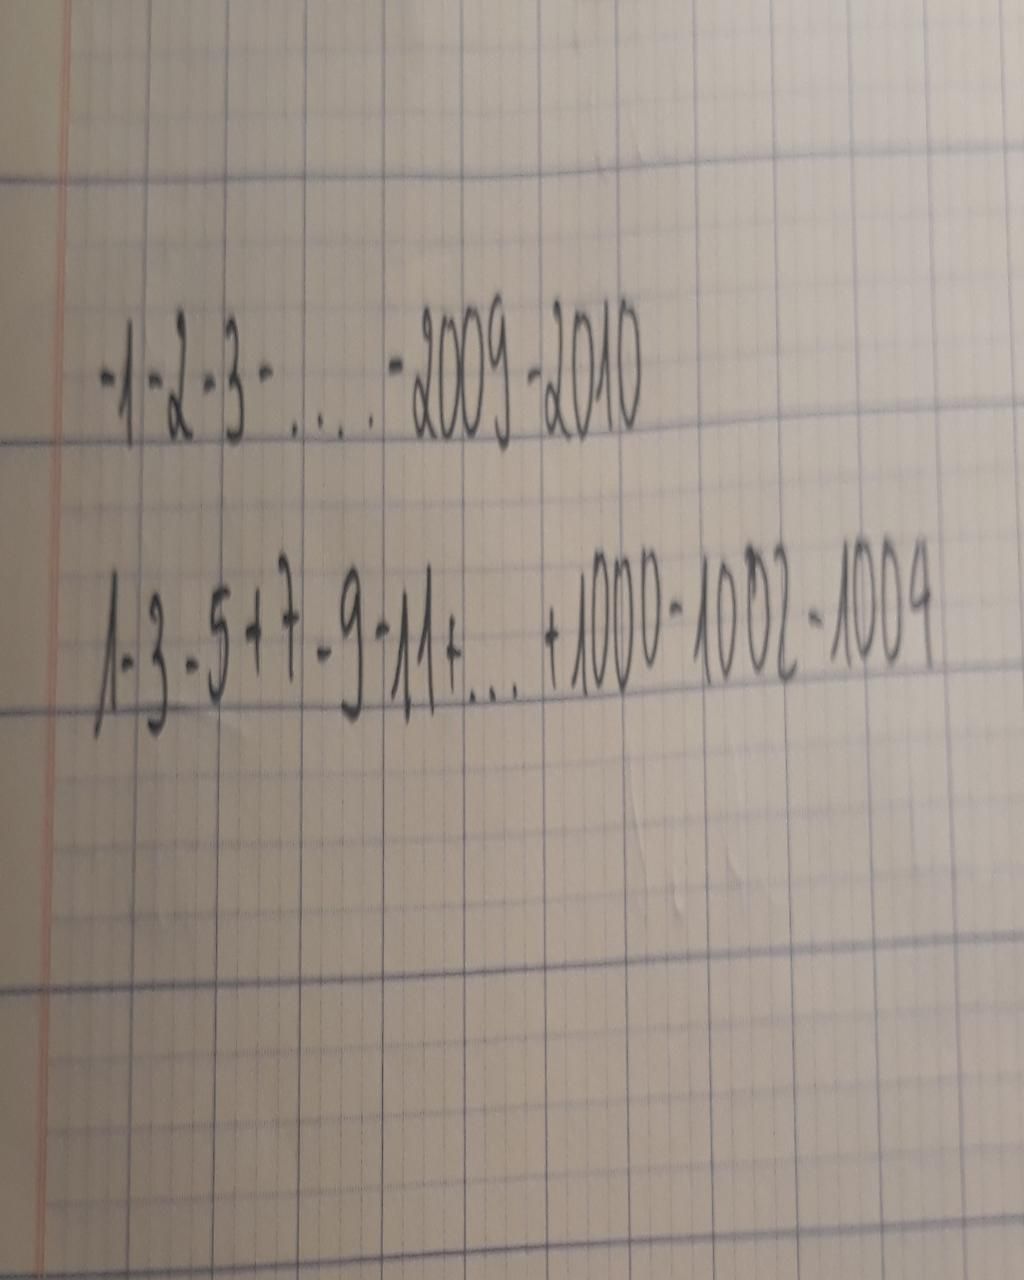 -1-2-3-....-2009-2010
1-3-5+7-9-11+...+1000-1002-1004